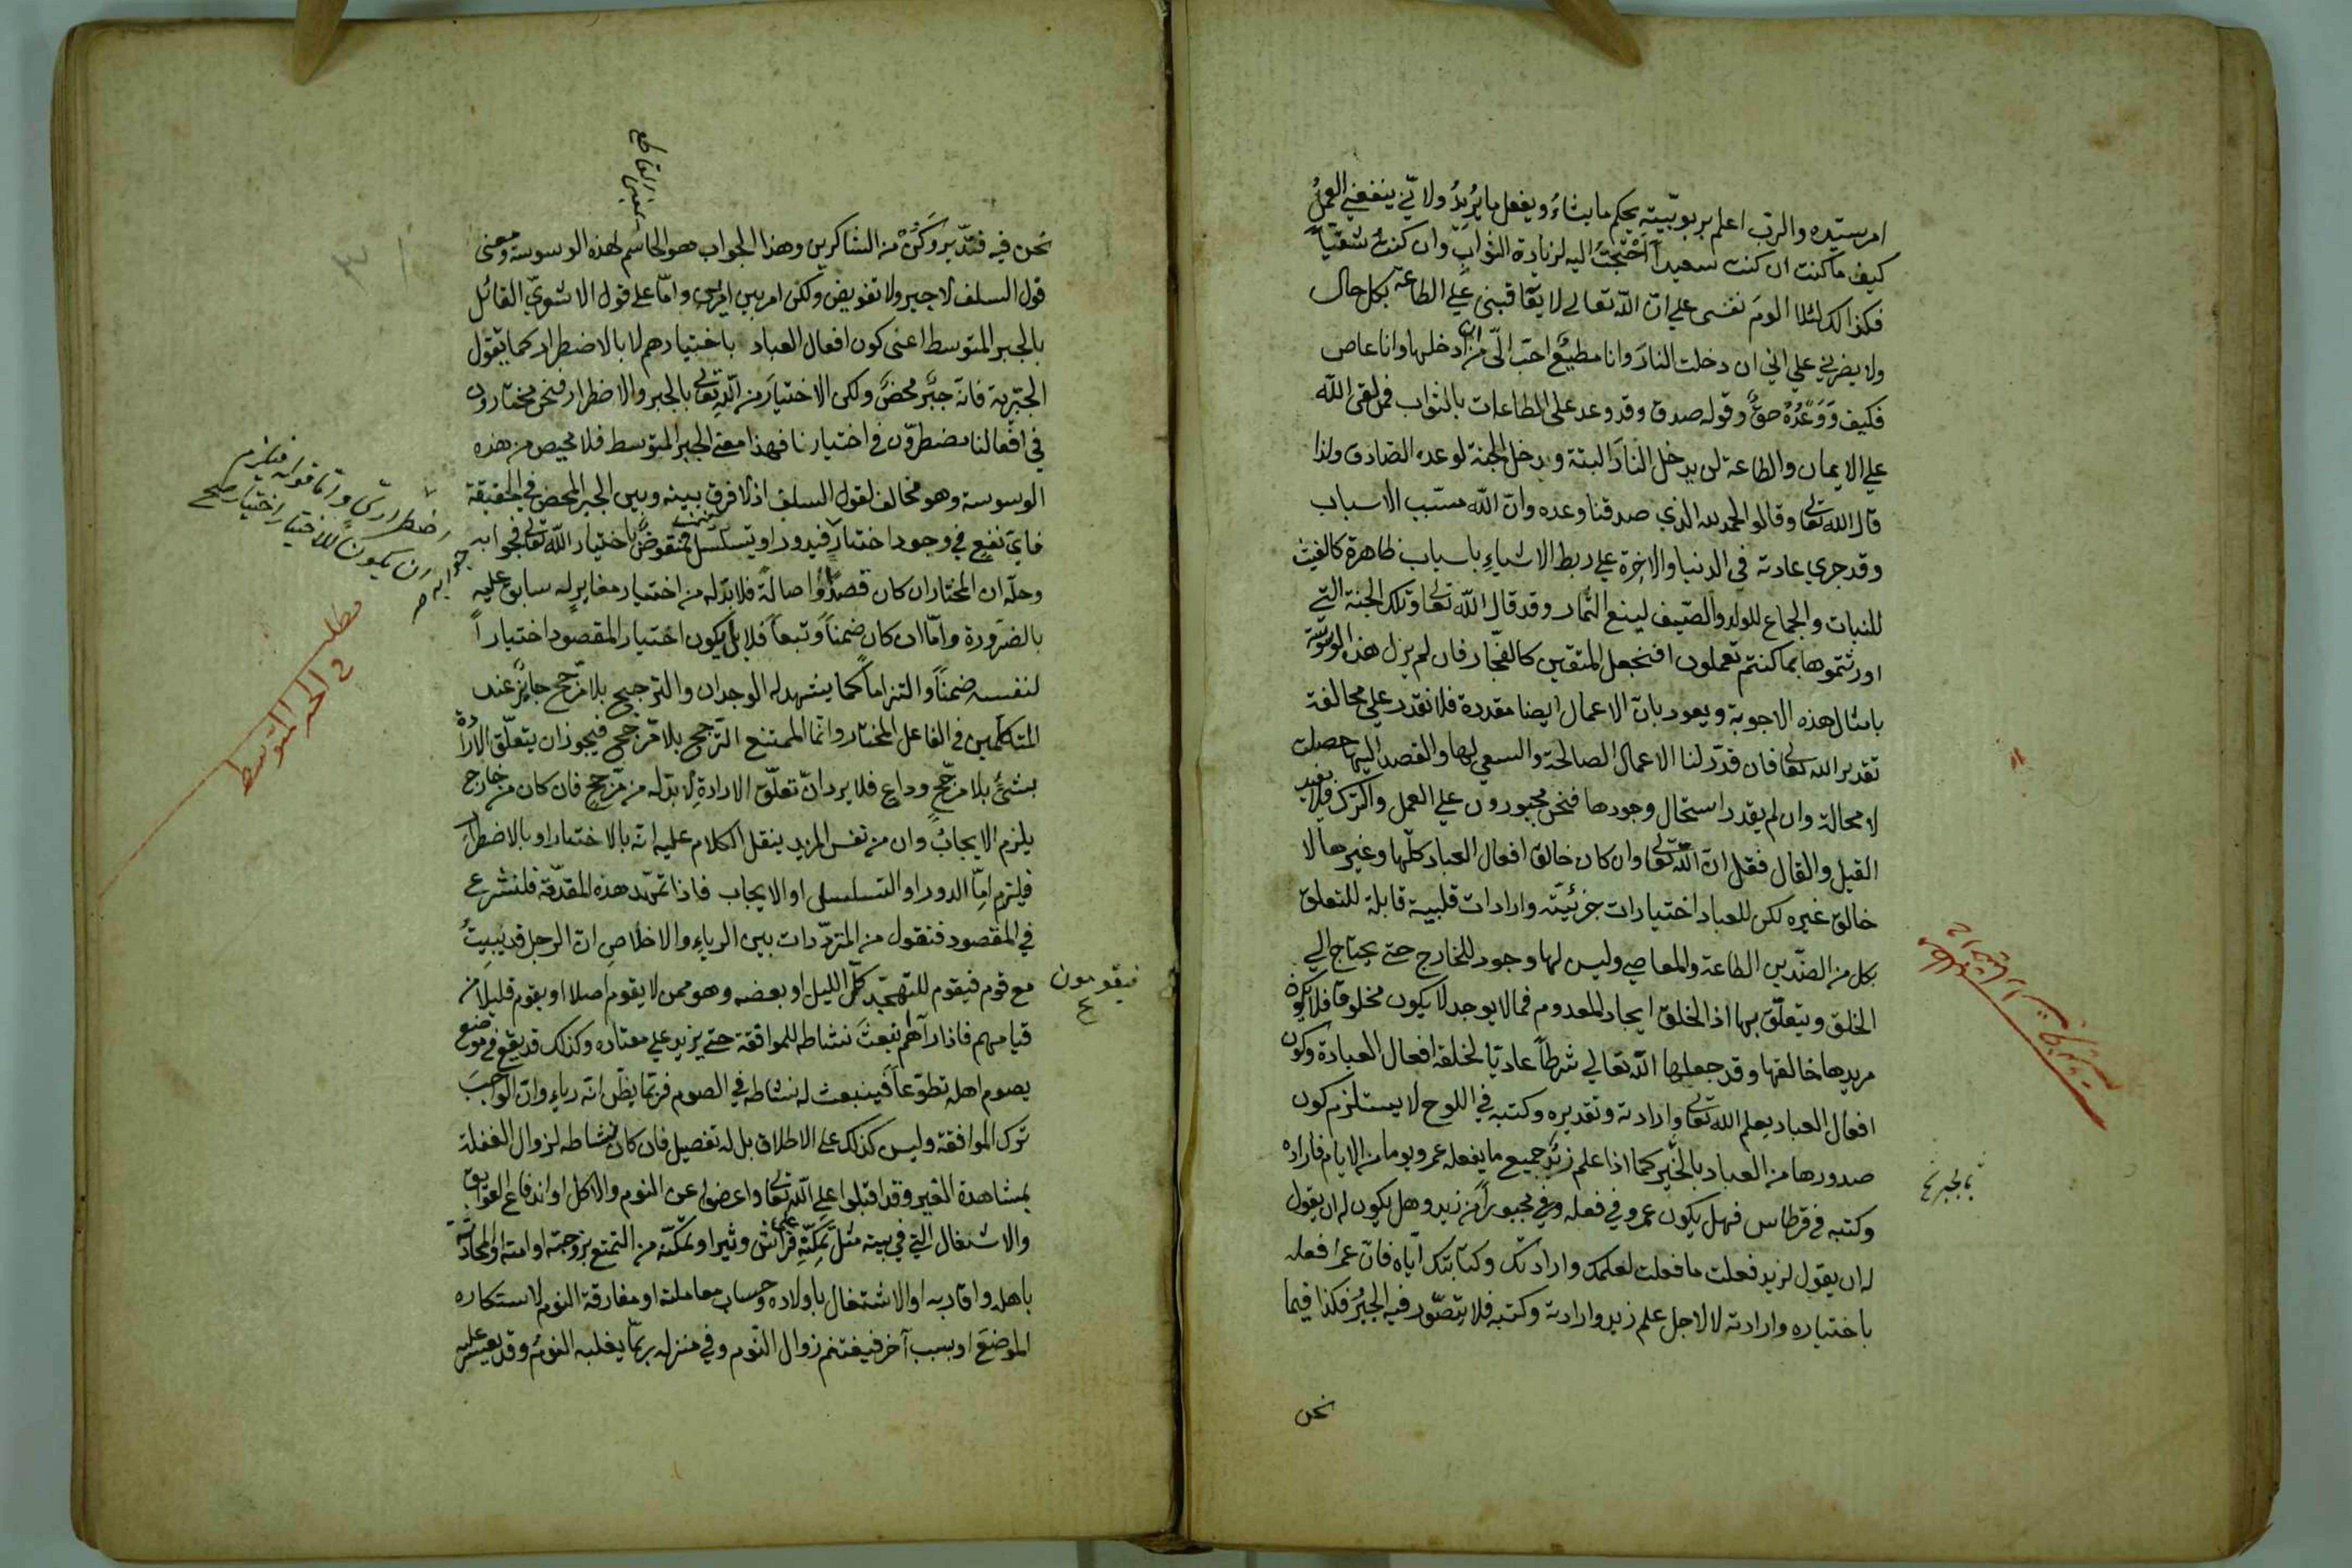 امر سيّده والرب اعلم بربوبيّته يحكم ما يشاءُ ويفعل ما يُريدُ ولانّي ينفعني العملُ
كيف ما كنت ان كنت سعيداً احْتَجْتُ اليه لزيادة الثواب وان كنتُ شقيّاً
فكذالك لئلا الومَ نفسى على انّ الله تعالى لا يعاقبنى على الطاعة بكل حال
ولا يضرني على اني ان دخلت النارَ وانا مطيعٌ احب الىّ من ان ادخلها وانا عاص
فكيف وَوَعْدُهُ حقٌّ وقوله صدق وقد وعد على الطاعات بالثواب فمن لقى الله
على الايمان والطاعة لن يدخل النارَ البتة ويدخل الجنة لوعده الصّادق ولذا
قال الله تعالى وقالوا الحمد لله الذي صدقنا وعده وانّ الله مسبّب الاسباب
وقد جرى عادته في الدنيا والاخرة على ربط الاشياءِ باسباب ظاهرة كالغيث
للنبات والجماع للولد والصّيف لينع الثمار وقد قال الله تعالى وتلك الجنة التي
اورثتموها بما كنتم تعملون افنجعل المتقين كالفجّار فان لم يزل هذه الوسوسة
بامثال هذه الاجوبة ويعود بانّ الاعمال ايضا مقدرة فلا نقدر على مخالفة
تقدير الله تعالى فان قدّر لنا الاعمال الصالحة والسعي لها والقصد اليها حصلت
لا محالة وان لم يقدر استحال وجودها فنحن مجبورون على العمل والترك فلا يفيد
القيل والقال فقل انّ اللّه تعالى وان كان خالق افعال العباد كلّها وغيرها لا
خالق غيره لكن للعباد اختيارات جزئيّة وارادات قلبية قابلة للتعلق
بكل من الضّدين الطاعة والمعاصي وليس لها وجود للخارج حتى يحتاج الى
الخلق ويتعلّق بها اذ الخلق ايجاد المعدوم فما لا يوجد لا يكون مخلوقا فلا يكون
مريدها خالقها وقد جعلها الله تعالى شرطاً عاديّا لخلقه افعال العبادة وكون
افعال العباد بعلم الله تعالى وارادته وتقديره وكتبه في اللوح لا يستلزم كون
صدورها من العباد بالخير كما اذا علم زيدٌ جميع ما يفعله عمرو يوما من الايام فاراده
وكتبه في قرطاس فهل يكون عمرو في فعله مجبوراً من زيد وهل يكون له ان يقول
له ان يقول لزيد فعلت ما فعلت لعلمك وارادتك وكتابتك ايّاه فانّ عمرا فعله
باختياره وارادته لا لاجل علم زيد وارادته وكتبه فلا يتصّور فيه الجبرُ فكذا فيما
نحن
بالجبر
نحن فيه فتدّبر وَكُنْ من الشاكرين وهذا الجواب هو الحاسم لهذه الوسوسة ومعنى
قول السلف لا جبر ولا تفويض ولكن امر بين امرين وامّا على قول الاشعريّ القائل
بالجبر المتوسط اعنى كون افعال العباد باختيارهم لا بالاضطرار كما يقول
الجبّرية فانه جبرٌ محضٌ ولكن الاختيارَ من اللّه تعالى بالجبر والاضطرار فنحن مختارون
في افعالنا مضطرّون في اختيارنا فهذا معنى الجبر المتوسط فلا محيص من هذه
الوسوسة وهو مخالف لقول السلف اذ لا فرق بينه وبين الجبر المحض في الحقيقة
فايّ نفع في وجود اختيار فيدور او يتسلسل فمنقوضٌ باختيار الله تعالى فجوابه
وحلّه ان المختار ان كان قصداً واصالةً فلا بدّ له من اختيار مغاير له سابق عليه
بالضرورة وامّا ان كان ضمناً وتبعاً فلا بل يكون اختيار المقصود اختياراً
لنفسه ضمناً والتزاماً كما يشهد له الوجدان والترجيح بلا مرّجح جايزٌ عند
المتكلّمين في الفاعل المختار وانّما الممتنع الترّجح بلا مرّجح فيجوز ان يتعلّق الارادة
بشئ بلا مرّجحٍ وداعٍ فلا يرد انّ تعلّق الارادة لا بدّ له من مرّجح فان كان من خارج
يلزم الايجابُ وان من نفس المريد ينقل الكلام عليه انه بالاختيار او بالاضطرار
فيلزم امّا الدور او التسلسل او الايجاب فاذا تمّهد هذه المقدّمة فلنشرع
في المقصود فنقول من المتردّدات بين الرياءِ والاخلاصِ انّ الرجل قد يبيتُ
مع قوم فيقوم للتهجّد كلّ الليل او بعضه وهو ممن لا يقوم اصلا او يقوم قليلا من
فيقومون
قيامهم فاذا رآهم انبعثَ نشاطه للموافقة حتى يزيد على معتاده وكذلك قد يقع في موضع
يصوم اهله تطوّعاً فينبعث له نشاطه في الصوم فربّما يظّن انّه رياءٌ وانّ الواجبَ
ترك الموافقة وليس كذلك على الاطلاق بل له تفصيل فان كان نشاطه لزوال الغفلة
بمشاهدة الغير وقد اقبلوا على اللّه تعالى واعرضوا عن النوم والاكل او اندفاع العوايق
والاشتغال التي في بيته مثل تمكّنه على فراش وثير او تمكّنه من التمتع بزوجته او امته او المحادثة
باهله واقاربه او الاشتغال باولاده وحساب معاملته او مفارقة النوم لاستنكاره
الموضع او بسبب آخر فيغتنم زوال النّوم وفي منزله ربّما يغلبه النومُ وقد يعسر عليه
اضطراريّ وامّا قوله فيلزم
ان يكون للاختيار اختيار صح
مطلب
في الجبر المتوسط